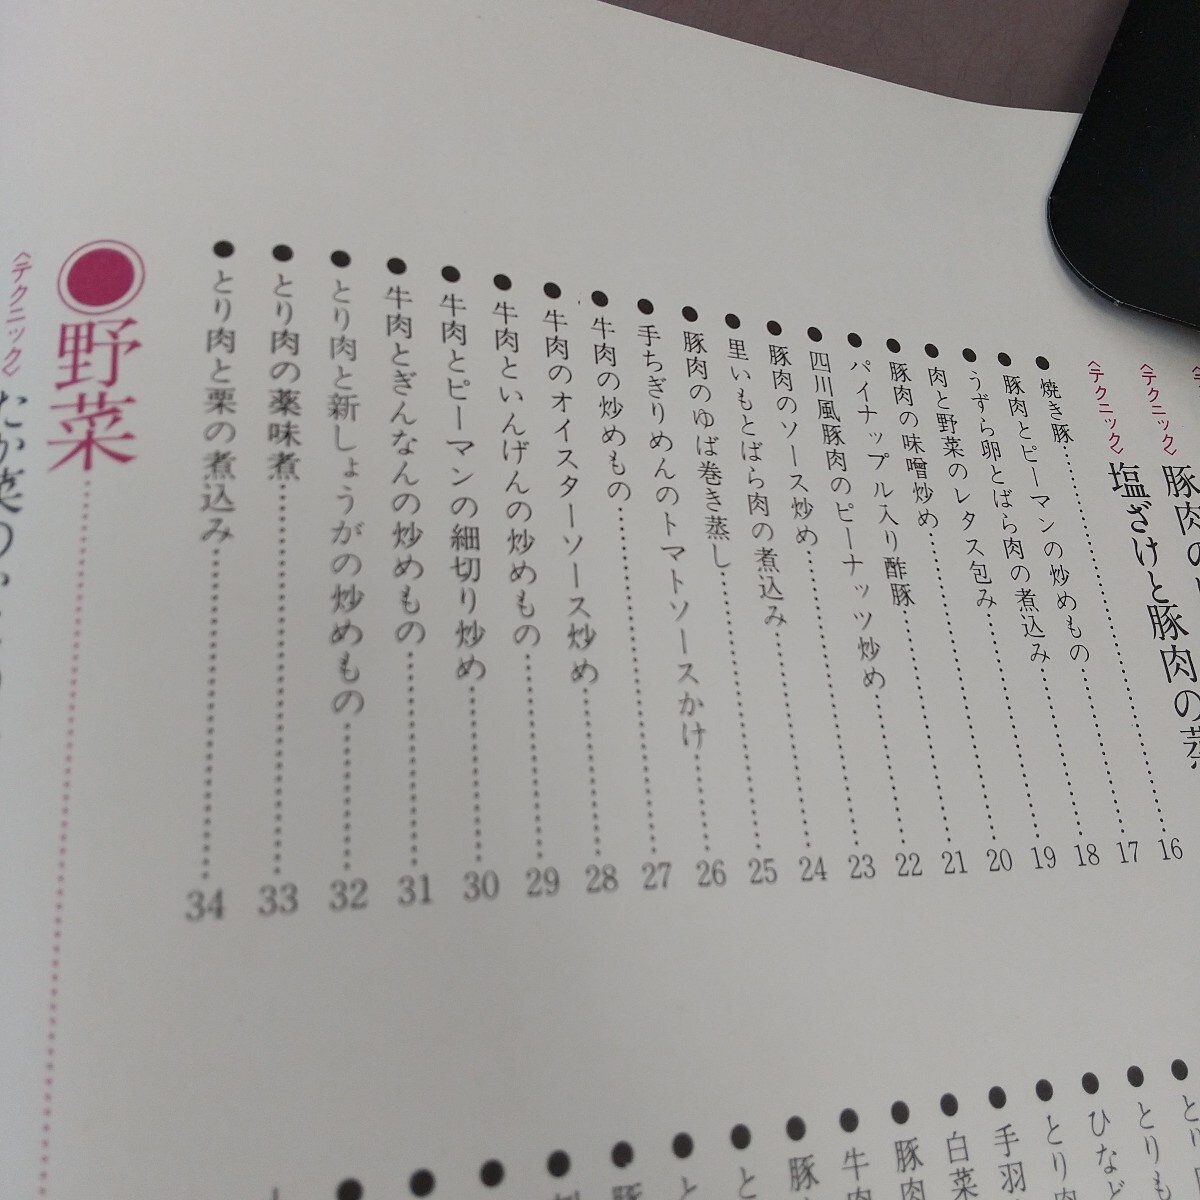 〈テクニック〉豚肉の
〈テクニック〉塩ざけと豚肉の蒸
●焼き豚……16
●豚肉とピーマンの炒めもの……17
●うずら卵とばら肉の煮込み……18
●肉と野菜のレタス包み……19
●豚肉の味噌炒め……20
●パイナップル入り酢豚……21
●四川風豚肉のピーナッツ炒め……22
●豚肉のソース炒め……23
●里いもとばら肉の煮込み……24
●豚肉のゆば巻き蒸し……25
●手ちぎりめんのトマトソースかけ……26
●牛肉の炒めもの……27
●牛肉のオイスターソース炒め……28
●牛肉といんげんの炒めもの……29
●牛肉とピーマンの細切り炒め……30
●牛肉とぎんなんの炒めもの……31
●とり肉と新しょうがの炒めもの……32
●とり肉の薬味煮……33
●とり肉と栗の煮込み……34
●野菜……
〈テクニック〉たか菜の
●とり
●とりも
●ひなど
●とり肉
●手羽
●白菜
●豚肉
●牛肉
●豚
●と
●と
●豚